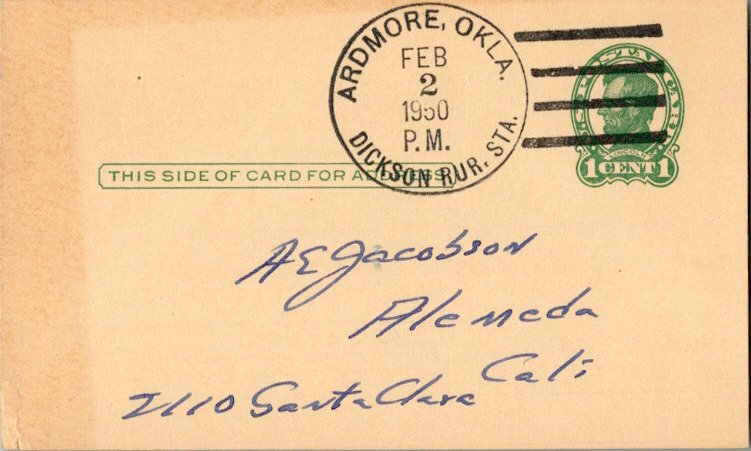 ARDMORE, OKLA.
FEB
2
1950
P.M.
DICKSON RUR. STA.
U.S. POSTAL CARD
LINCOLN
1 CENT 1
THIS SIDE OF CARD FOR ADDRESS
AE Jacobson
Alemeda
Cali
2110 Santa Clara